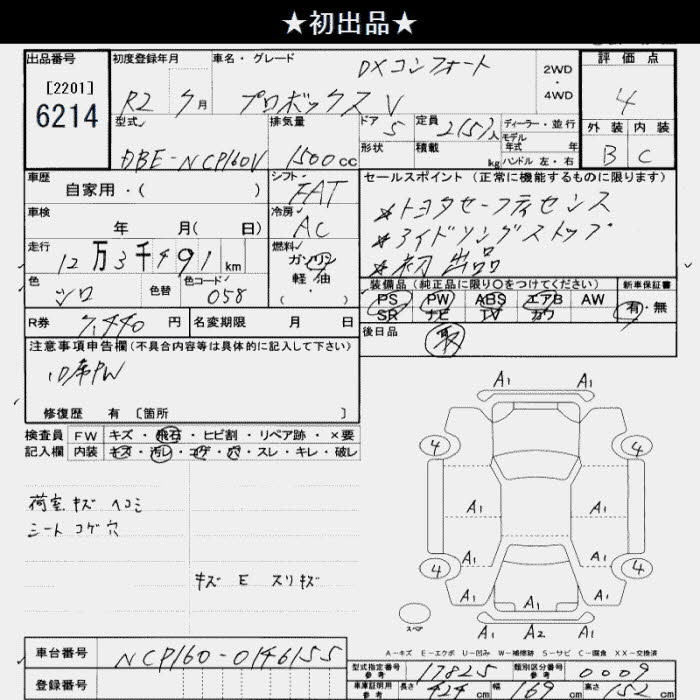 ★初出品★
出品番号
[2201]
6214
初度登録年月
R2 7月
車名・グレード
DXコンフォート
プロボックスV
2WD
・
4WD
評価点
4
外装 内装
B C
型式
DBE-NCP160V
排気量
1500cc
ドア 5
形状
定員 2(5)人
積載 kg
ディーラー・並行
モデル年式 年
ハンドル 左・右
車歴
自家用・( )
シフト
FAT
車検
年 月( 日)
冷房
AC
走行
12万3千491km
燃料
ガソリン
軽油
( ・ )
色
シロ
色替
色コード
058
R券 7,440円
名変期限 月 日
セールスポイント(正常に機能するものに限ります)
☆トヨタセーフティセンス
☆アイドリングストップ
☆初出品
装備品(純正品に限り○をつけてください)
PS PW ABS エアB AW
SR ナビ TV カワ
新車保証書
有・無
後日品
取
注意事項申告欄(不具合内容等は具体的に記入して下さい)
修復歴 有 〔箇所 〕
検査員記入欄
FW キズ・飛石・ヒビ割・リペア跡・×要
内装 キズ・汚レ・コゲ・穴・スレ・キレ・破レ
荷室キズ ヘコミ
シート コゲ穴
キズ E スリキズ
A1 A1
A1 A1
4 4
A1 A1
A1 A1
4 4
A1 A1 A1
A1 A2 A1
スペア
A-キズ E-エクボ U-凹み W-補修跡 S-サビ C-腐食 XX-交換済
車台番号
NCP160-0146155
登録番号
型式指定番号 参考 17825
類別区分番号 参考 0009
車庫証明用 参考 長さ 424cm 幅 169cm 高さ 152cm